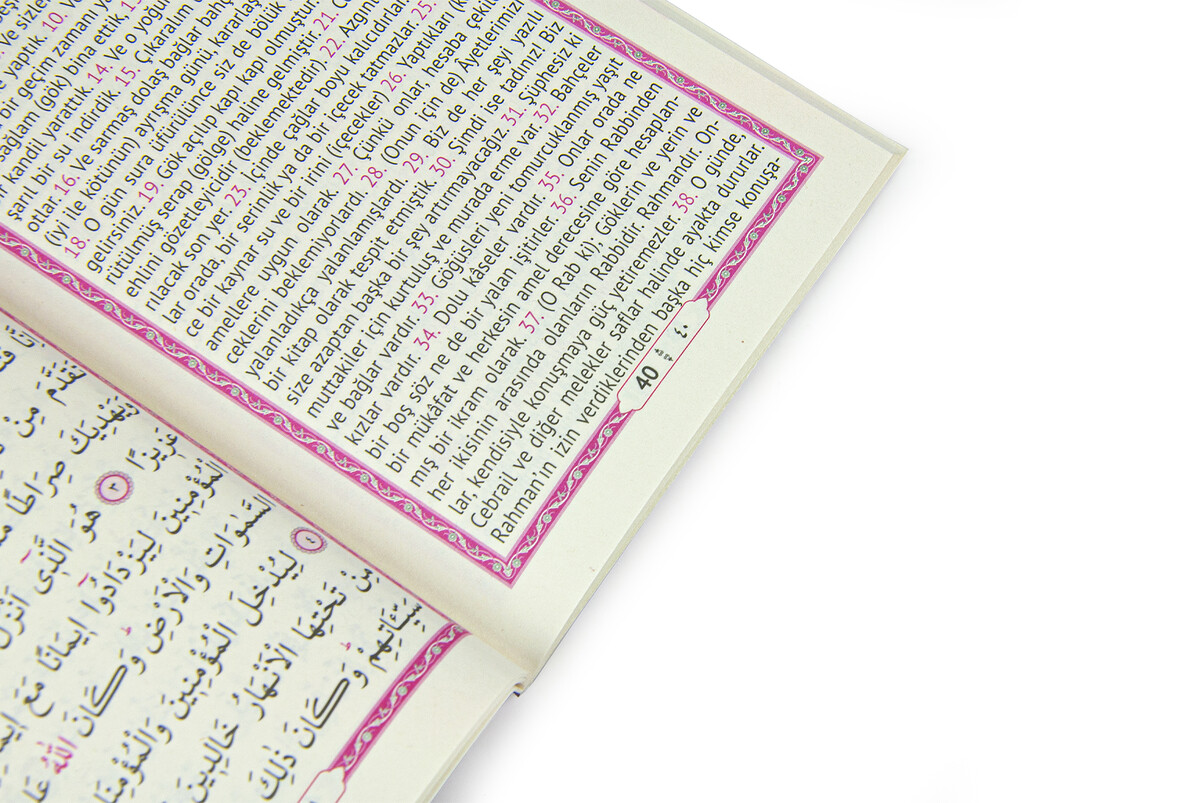 ve sizler
yaptık. 10. Ve
bir geçim zamanı ya
sağlam (gök) bina ettik. 1
r kandil yarattık. 14. Ve o yoğu
şarıl bir su indirdik. 15. Çıkaralım d
otlar. 16. Ve sarmaş dolaş bağlar bahç
(iyi ile kötünün) ayrışma günü, kararlaş
18. O gün sura üfürülünce siz de bölük
gelirsiniz. 19. Gök açılıp kapı kapı olmuştur.
rütülmüş serap (gölge) haline gelmiştir. 21. C
ehlini gözetleyicidir (beklemektedir) 22. Azgın
rılacak son yer. 23. İçinde çağlar boyu kalıcıdırlar
lar orada, bir serinlik ya da bir içecek tatmazlar. 25.
ce bir kaynar su ve bir irini (çecekler) 26. Yaptıkları (k
amellere uygun olarak. 27. Çünkü onlar hesaba çekil
ceklerini beklemiyorlardı. 28. (Onun için de) Âyetlerimizi
yalanladıkça yalanlamışlardı. 29. Biz de her şeyi yazılı
bir kitap olarak tespit etmiştik. 30. Şimdi ise tadınız! Biz
size azaptan başka bir şey artırmayacağız. 31. Şüphesiz ki
muttakiler için kurtuluş ve murada erme var. 32. Bahçeler
ve bağlar vardır. 33. Göğüsleri yeni tomurcuklanmış yaşıt
kızlar vardır. 34. Dolu kâseler vardır. 35. Onlar orada ne
bir boş söz ne de bir yalan işitirler. 36. Senin Rabbinden
bir mükâfat ve herkesin amel derecesine göre hesaplan-
mış bir ikram olarak. 37. (O Rab ki), Göklerin ve yerin ve
her ikisinin arasında olanların Rabbidir. Rahmandır. On-
lar, kendisiyle konuşmaya güç yetiremezler. 38. O günde,
Cebrail ve diğer melekler saflar halinde ayakta dururlar
Rahman'ın izin verdiklerinden başka hiç kimse konuşa-
40 ٤٠
تَقَدَّمَ مِنْ
وَيَهْدِيَكَ صِرَاطًا
عَزِيزًا ٣ هُوَ الَّذِى اَنْزَلَ
الْمُؤْمِنِينَ لِيَزْدَادُوا اِيمَانًا مَعَ
السَّمٰوَاتِ وَالْاَرْضِ وَكَانَ اللّٰهُ
٤ لِيُدْخِلَ الْمُؤْمِنِينَ وَالْمُؤْمِنَا
مِنْ تَحْتِهَا الْاَنْهَارُ خَالِدِينَ
سَيِّـَٔاتِهِمْ وَكَانَ ذٰلِكَ